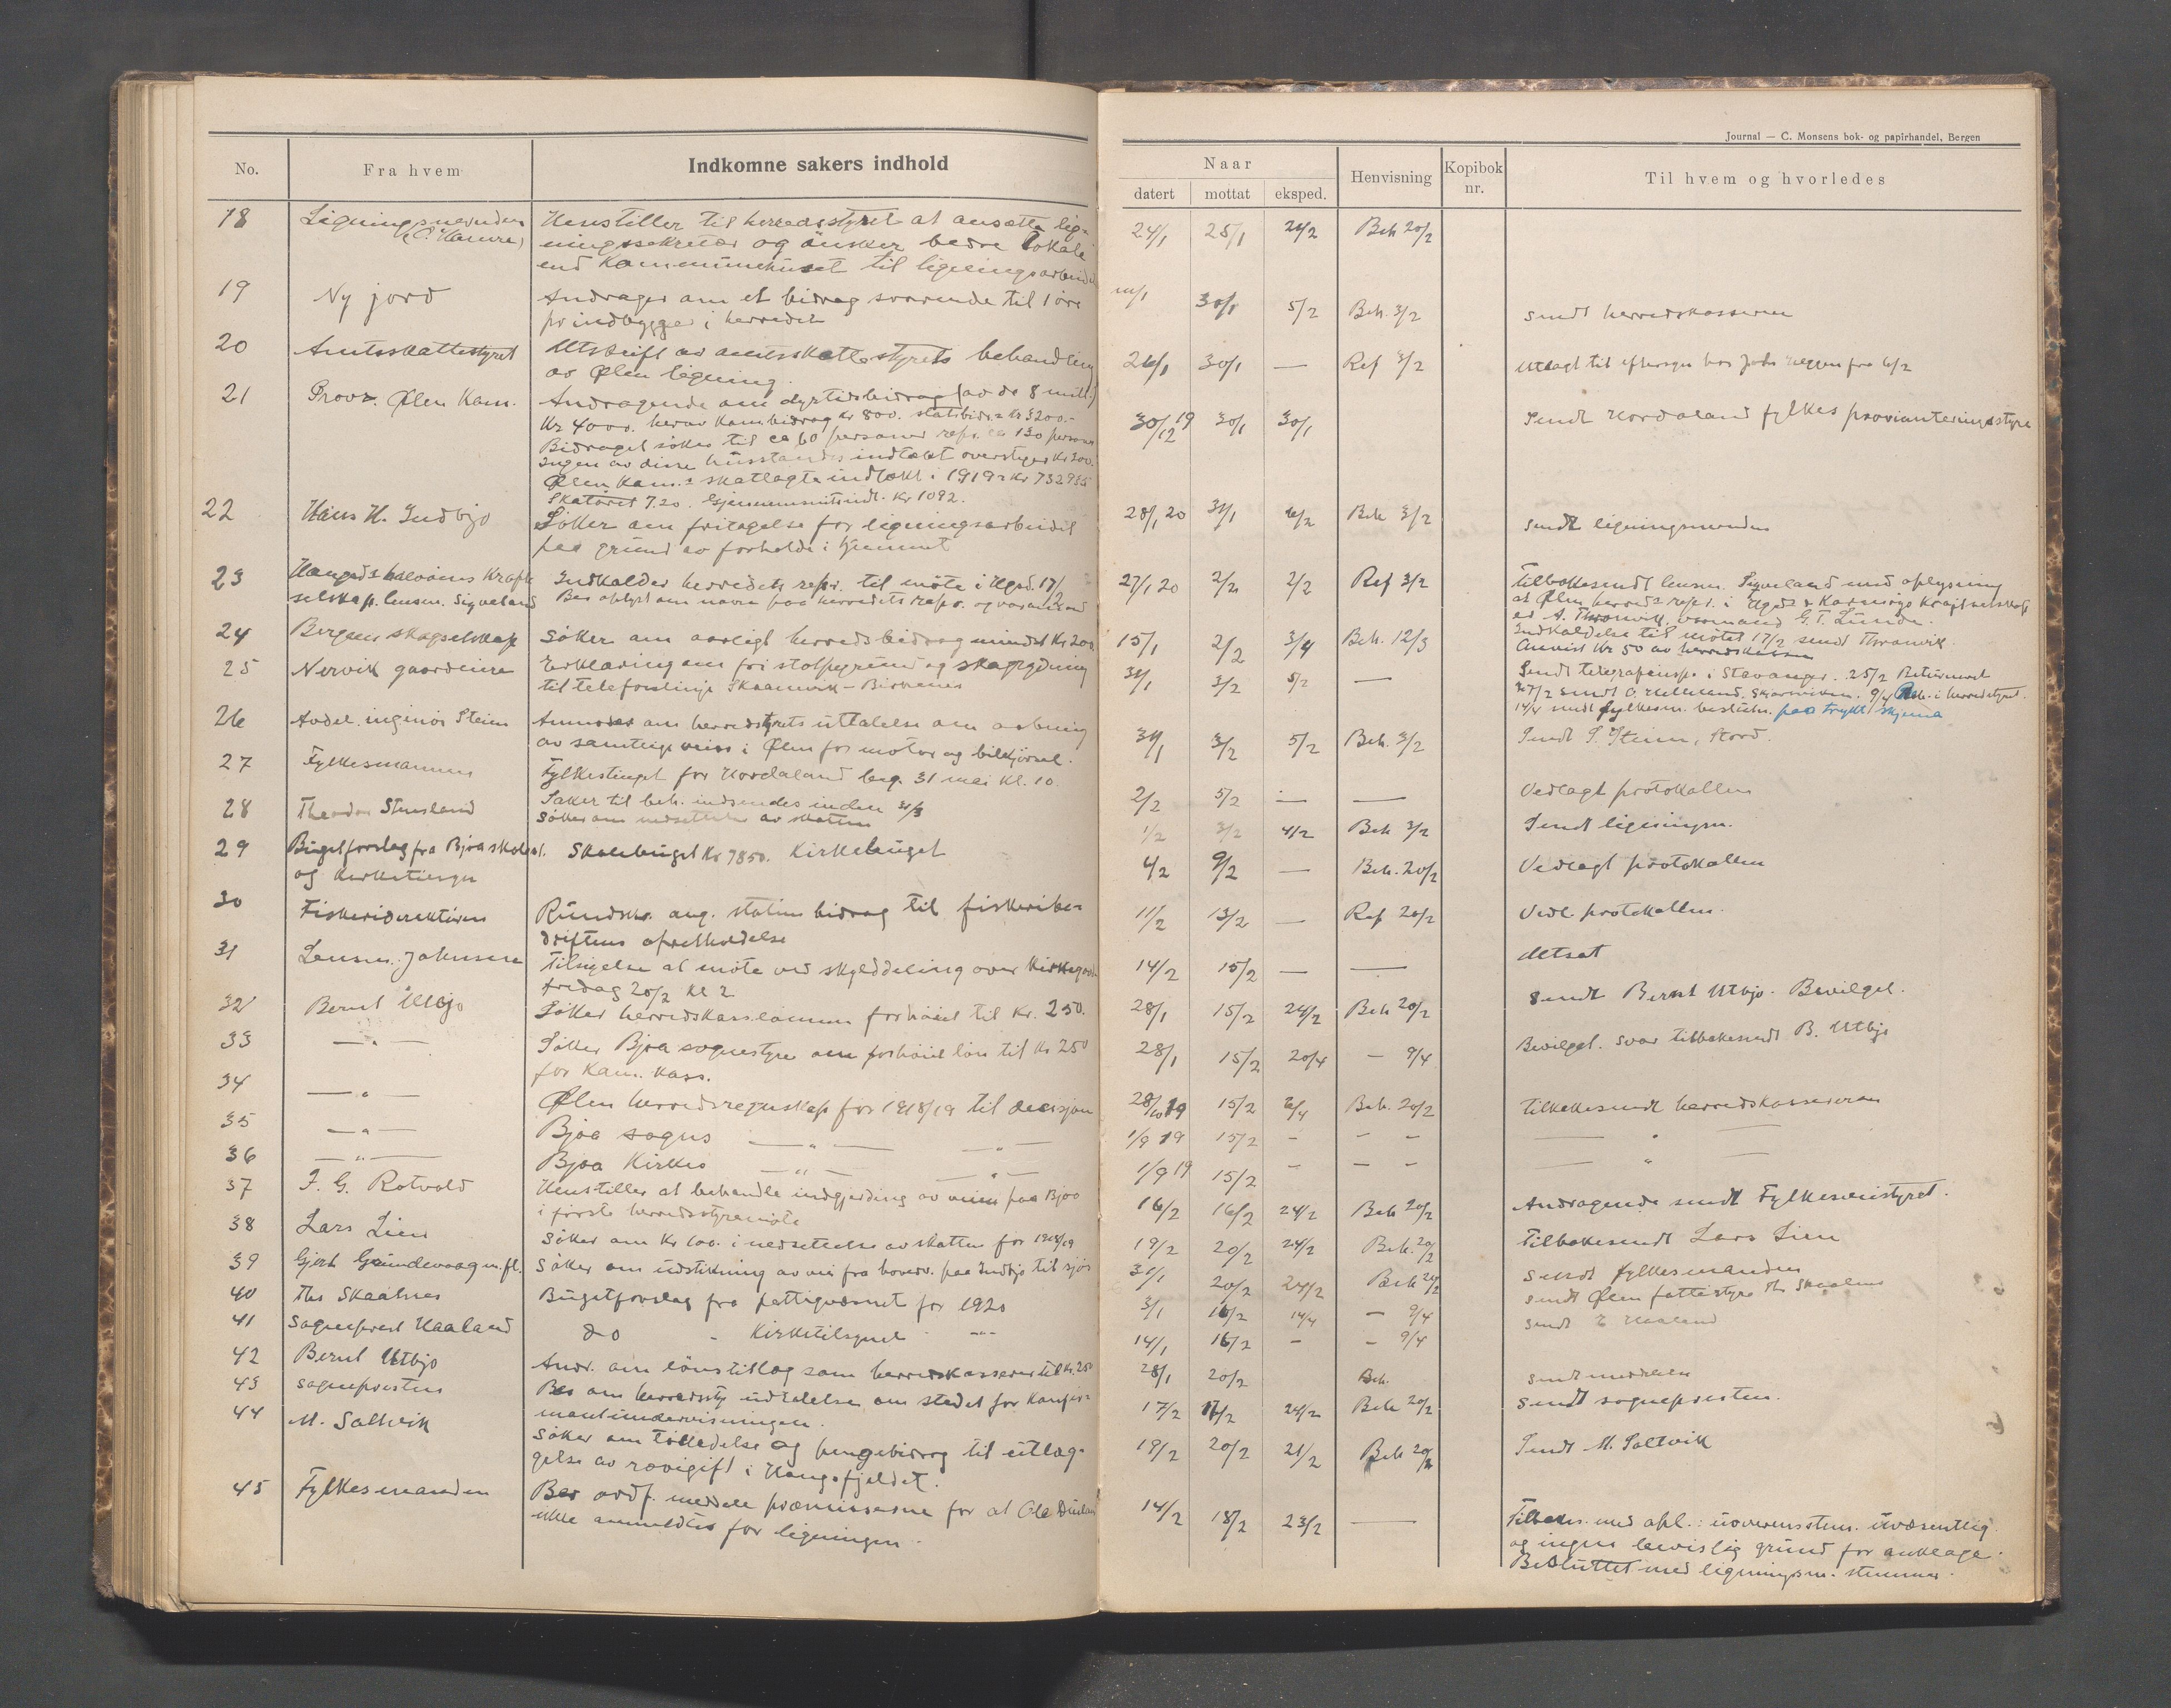 Journal — C. Monsens bok- og papirhandel, Bergen
No. Fra hvem Indkomne sakers indhold
Naar Henvisning Kopibok nr. Til hvem og hvorledes
datert mottat eksped.
18 Ligningsnevnden Henstiller til herredsstyret at ansætte lig-
ningssekretær og ønsker bedre lokale
end Kommunehuset til ligningsarbeidet
24/1 25/1 24/2 Beh 20/2
19 Ny jord Andrager om et bidrag svarende til 1 øre
pr indbygger i herredet
30/1 5/2 Beh. 3/2 sendt herredskasseren
20 Amtsskattestyret Utskrift av amtsskattestyrets behandling
av Ølen ligning.
26/1 30/1 — Ref 3/2 Utlagt til eftersyn hos fra 6/2
21 Prov. Ølen Kom. Andragende om dyrtidsbidrag (av de 8 mill.)
Kr 4000. herav Kom.bidrag Kr 800. statsbidr. Kr 3200.-
Bidraget søkes til ca 60 personer repr. ca 130 personer
Ingen av disse husstandes indtækt overstiger Kr 300.
Ølen Kom.s skatlagte indtækt i 1919 = Kr 732935
Skatøret 7.20. Gjennemsnitsindt. Kr 1092.
30/12 19 30/1 30/1 Sendt Hordaland fylkes provianteringsstyre
22 Hans H. Indbjo Søker om fritagelse for ligningsarbeidet
paa grund av forholde i hjemmet
28/1 20 31/1 6/2 Beh 3/2 sendt ligningsnevnden
23 Haugesds halvøens Kraft-
selskap. lensm. Sigveland
Indkalder herredets repr. til møte i Hgsd. 17/2
Bes oplyst om navn paa herredets repr. og varamand
27/1 20 2/2 2/2 Ref 3/2 Tilbakesendt lensm. Sigveland med oplysning
at Ølen herreds repr. i Hgsds & Karmøys Kraftselskap
er A. Thronvik, varamand G. T. Lunde.
Indkaldelse til møtet 17/2 sendt Thronvik.
24 Bergens skogselskap Søker om aarligt herredsbidrag mindst Kr 200
15/1 2/2 3/4 Beh. 12/3 Anvist Kr 50 av herredskassen
25 Nervik gaardeiere Erklæring om fri stolpegrund og skogrydning
til telefonlinje Skaanvik – Birkenes
31/1 3/2 5/2 — Sendt telegrafinsp. i Stavanger. 25/2 Returneret
27/2 sendt O. 9/4 Beh. i herredstyret.
14/4 sendt fylkesm. beslutn. paa trykt skjema
26 Avdel. ingeniør Steim Anmoder om herredstyrets uttalelse om aapning
av samtlige veier i Ølen for motor og bilkjørsel.
31/1 3/2 5/2 Beh. 3/2 Sendt S. Steim, Stord.
27 Fylkesmannen Fylkestinget for Hordaland beg. 31 mai Kl. 10.
Saker til beh. indsendes inden 31/3
2/2 5/2 — — Vedlagt protokollen
28 Theodor Stensland Søker om nedsettelse av skatten
1/2 3/2 4/2 Beh 3/2 Sendt ligningsn.
29 Bugetforslag fra Bjoa skolest. Skolebuget Kr 7850. Kirkebuget
og kirketilsyn
4/2 9/2 — Beh. 20/2 Vedlagt protokollen
30 Fiskeridirektøren Rundskr. ang. statens bidrag til fiskeribe-
driftens opretholdelse
11/2 13/2 — Ref 20/2 Vedl. protokollen.
31 Lensm. Johnsen Tilsigelse at møte ved skylddeling over Kirkegaard
fredag 20/2 Kl 2
14/2 15/2 — — detsat
32 Bernt Utbjo Søker herredskasselønnen forhøiet til Kr. 250.
28/1 15/2 24/2 Beh 20/2 Sendt Bernt Utbjo. Bevilget.
33 — " — Søker Bjoa sognestyre om forhøiet løn til Kr 250
for Kom. Kass.
28/1 15/2 20/4 — 9/4 Bevilget. Svar tilbakesendt B. Utbjo
34 — " — Ølen herredsregnskap for 1918/19 til decisjon
28/10 19 15/2 6/4 Beh. 20/2 Tilbakesendt herredskassereren
35 — " — Bjoa sogns — " — — " —
1/9 19 15/2 – – – — " —
36 — " — Bjoa Kirkes — " — — " —
1/9 19 15/2 – – – — " —
37 F. G. Rotvold Henstiller at behandle indgjerding av veien paa Bjoa
i første herredsstyremøte
16/2 16/2 24/2 Beh 20/2 Andragende sendt Fylkesveistyret.
38 Lars Lien Søker om Kr 100. i nedsettelse av skatten for 1918/19
19/2 20/2 24/2 Beh. 20/2 Tilbakesendt Lars Lien
39 Gjert Grundevaag m. fl. Søker om utstikning av vei fra hovedv. paa Indbjo til sjøs
31/1 20/2 24/2 Beh 20/2 sendt fylkesmanden
40 Ths Skaalnes Bugetforslag fra fattigvæsnet for 1920
3/1 16/2 14/4 — 9/4 sendt Ølen fattistyre Th Skaalnes
41 Sogneprest Haaland do - Kirketilsynet -"-
14/1 16/2 – – 9/4 sendt Haaland
42 Bernt Utbjo Andr. om lønstillæg som herredskasserer til Kr. 250
28/1 20/2 Beh. sendt meddelelse
43 Sognepresten Bes om herredssty. uttalelse om stedet for konfir-
mantundervisningen.
17/2 17/2 24/2 Beh 20/2 Sendt sognepresten.
44 M. Saltvik Søker om tilladelse og pengebidrag til utlæg-
gelse av rævegift i Haugsfjeldet.
19/2 20/2 21/2 Beh 20/2 Sendt M. Saltvik
45 Fylkesmanden Ber ordf. meddele præmisserne for at Ole
ikke anmeldtes for ligningen.
14/2 18/2 23/2 — Tilbakes. med opl.: uoverensstem. uvæsentlig
og ingen bevislig grund for anklage.
Besluttet med ligningsn. stemmer.